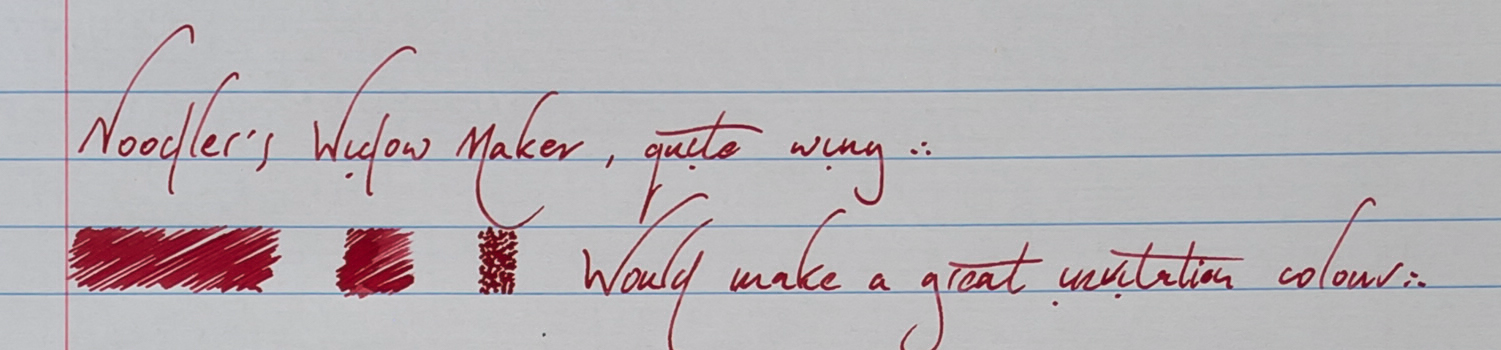 Noodler's Widow Maker, quite winy ∴
Would make a great invitation colour ∴